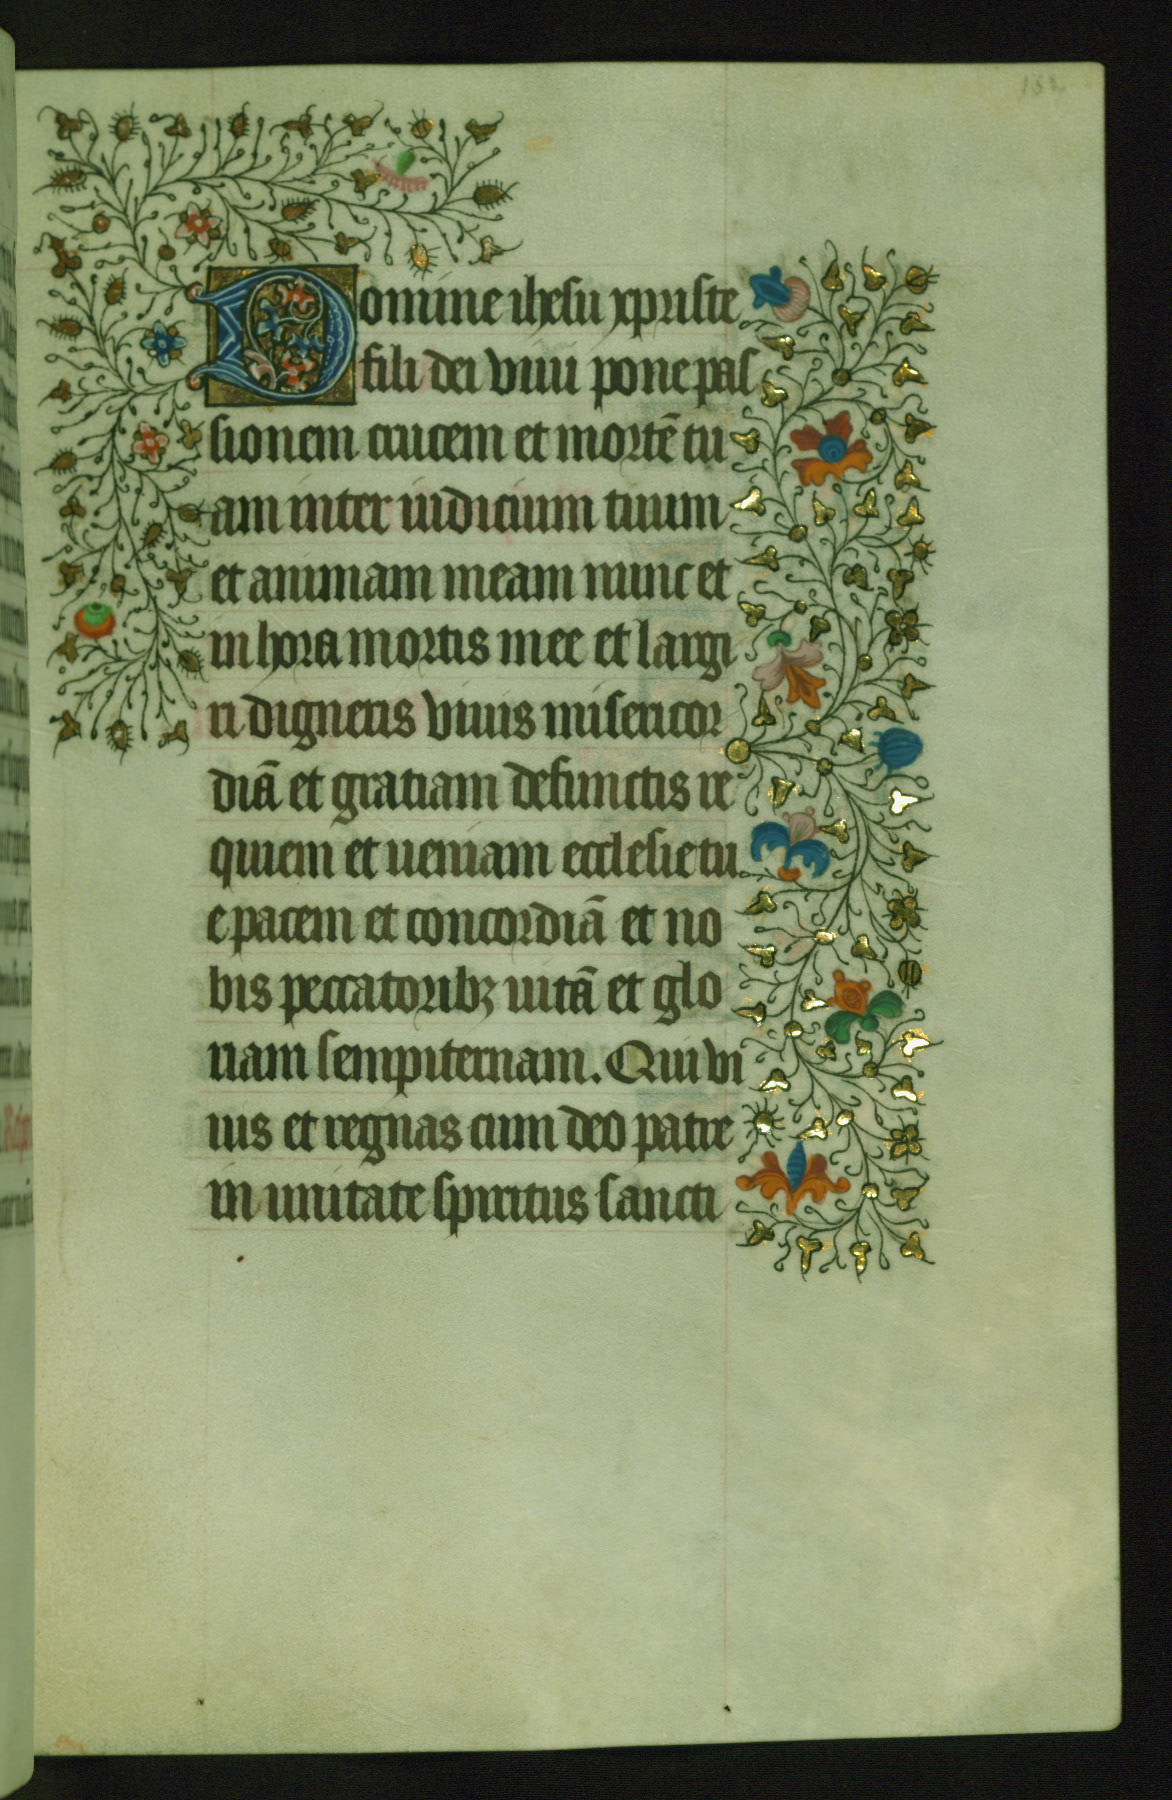 Domine ihesu xpriste
fili dei viui pone pas
sionem crucem et mortē tu
am inter iudicium tuum
et animam meam nunc et
in hora mortis mee et largi
ri digneris viuis misericor
diā et gratiam defunctis re
quiem et ueniam ecclesie tu
e pacem et concordiā et no
bis peccatoribꝫ uitā et glo
riam sempiternam. Qui vi
uis et regnas cum deo patre
in unitate spiritus sancti